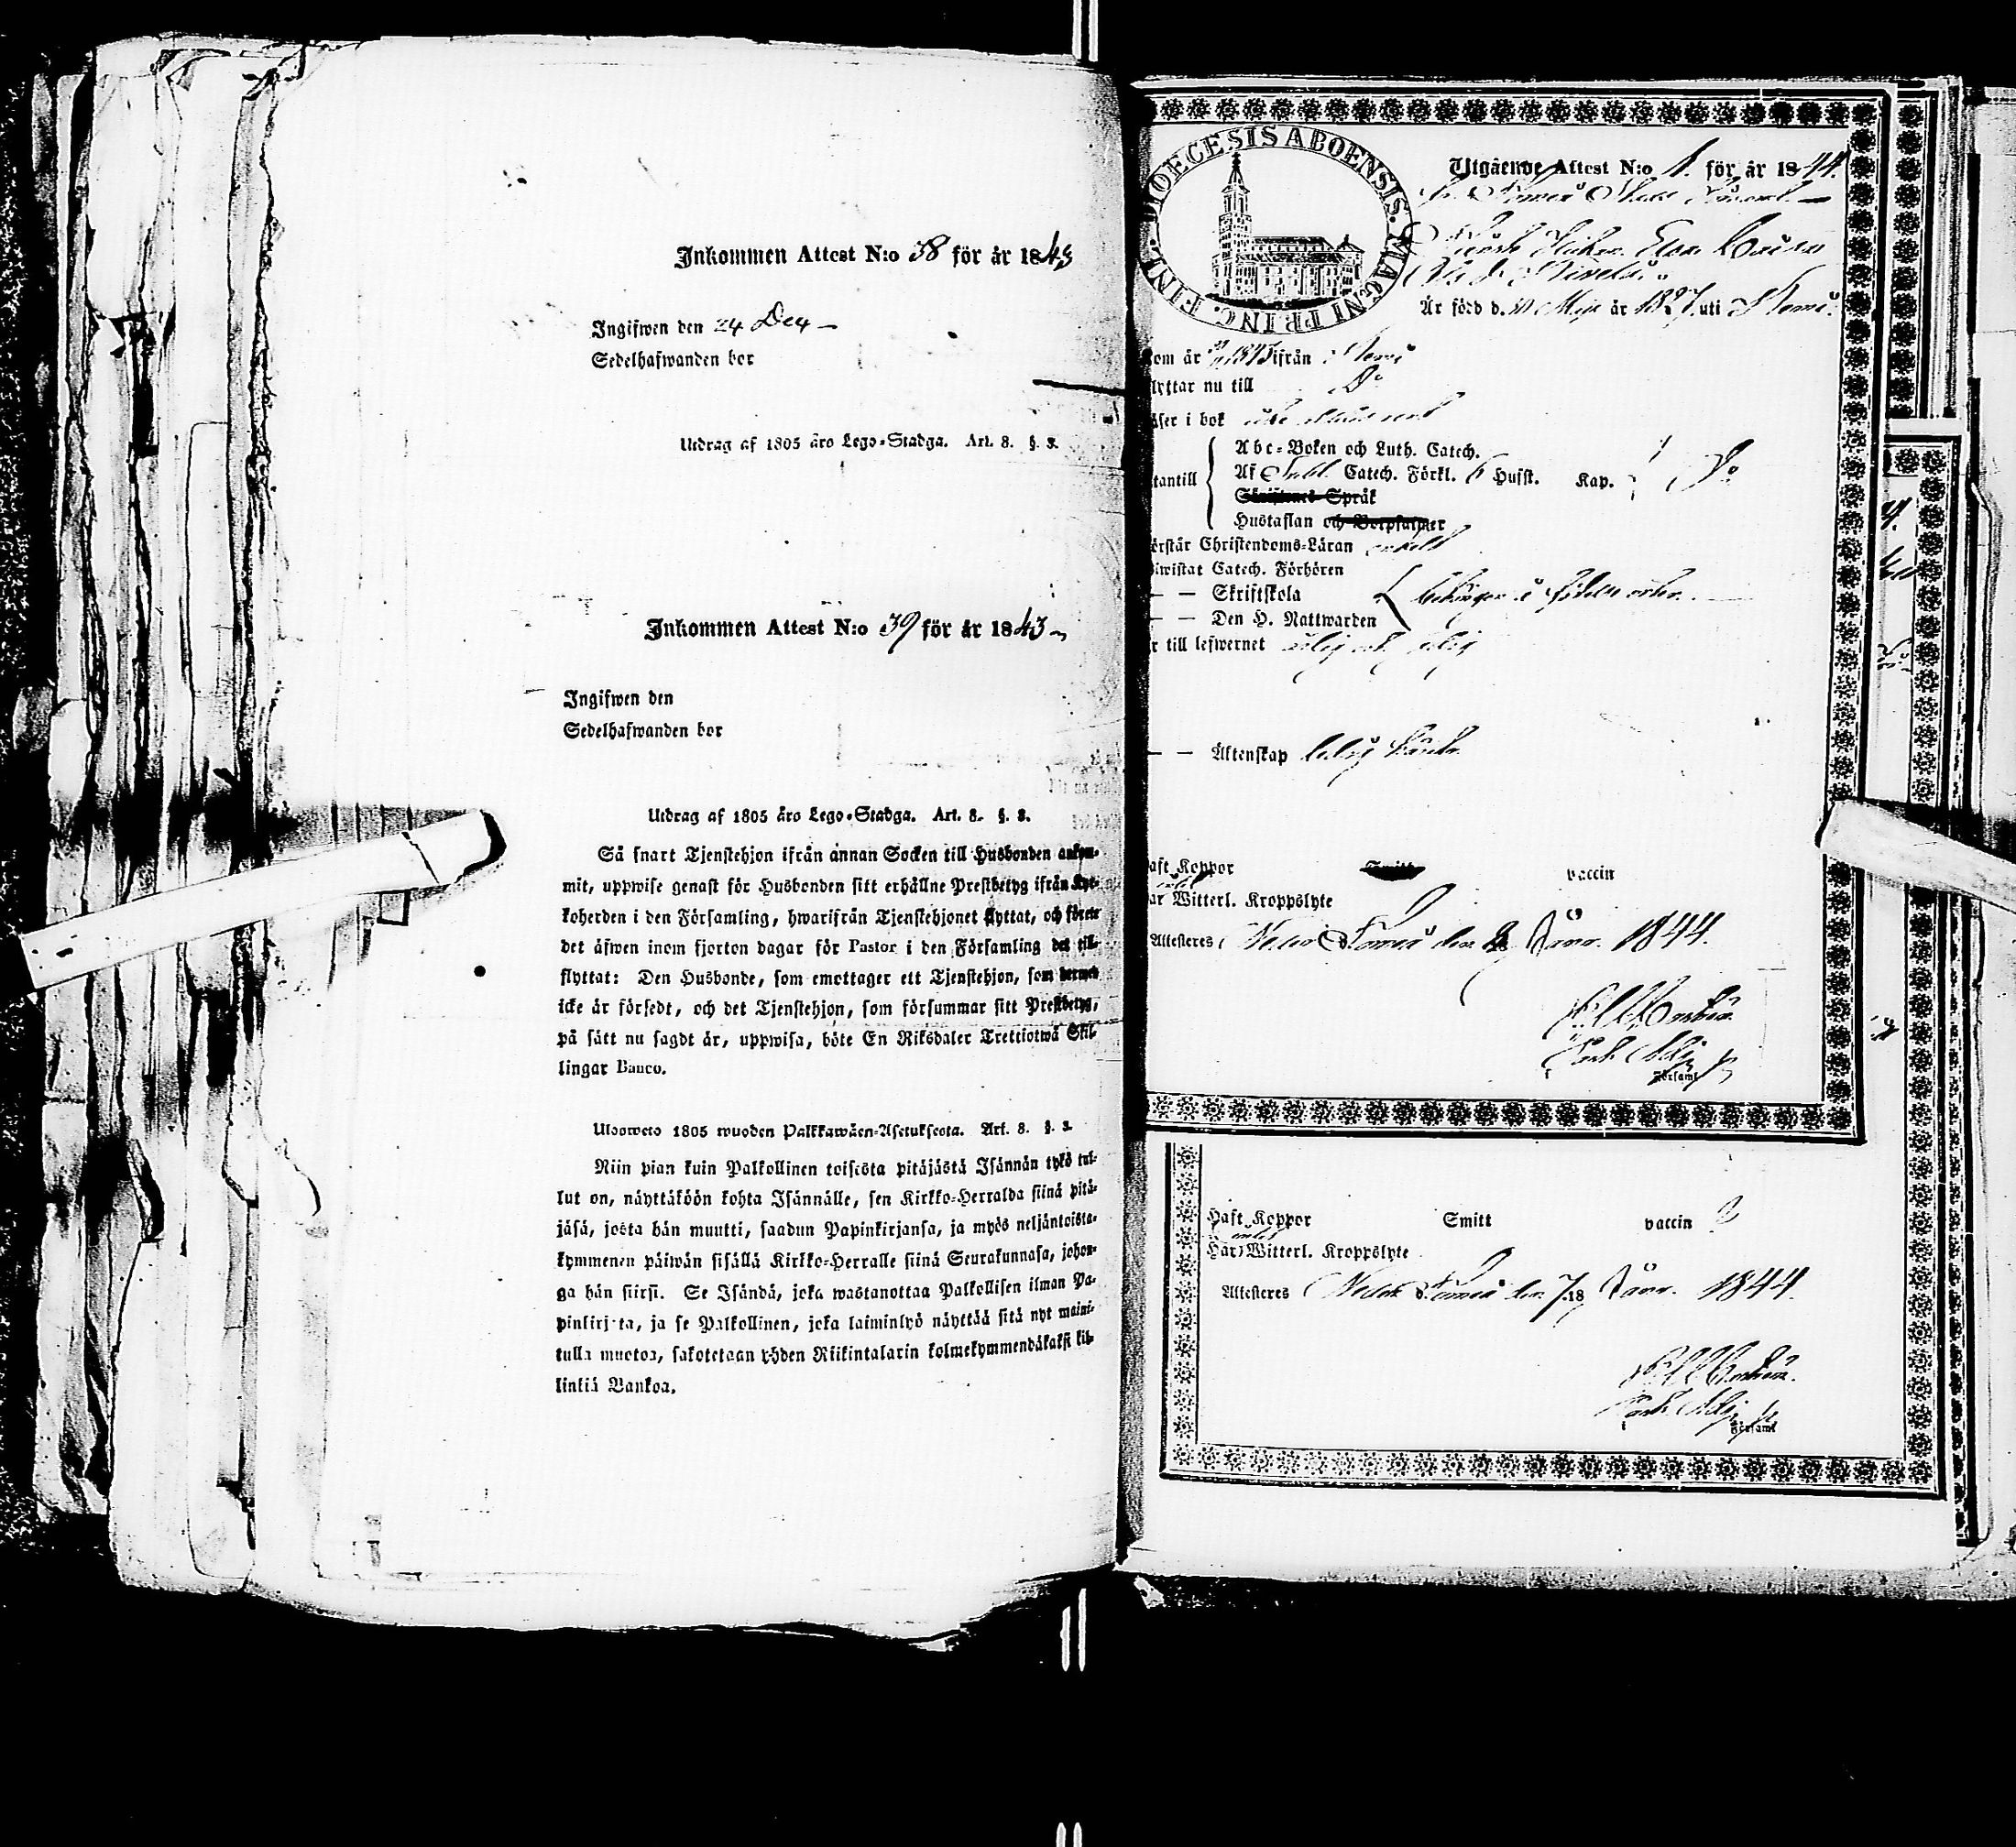 Inkommen Attest N:o 38 för år 1843
Ingifwen den 24 Dec
Sedelhafwanden bor
Utdrag af 1805 åro Lego-Stadga. Art. 8. §. 3.
Inkommen Attest N:o 39 för år 1843
Ingifwen den
Sedelhafwanden bor
Utdrag af 1805 åro Lego-Stadga. Art. 8. §. 3.
Så snart Tjenstehjon ifrån annan Socken till Husbonden ankom-
mit, uppwise genast för Husbonden sitt erhållne Prestbetyg ifrån Kyr-
koherden i den Församling, hwarifrån Tjenstehjonet flyttat, och förete
det äfwen inom fjorton dagar för Pastor i den Församling det till-
flyttat: Den Husbonde, som emottager ett Tjenstehjon, som dermed
icke är försedt, och det Tjenstehjon, som försummar sitt Prestbetyg,
på sätt nu sagdt är, uppwisa, böte En Riksdaler Trettiotwå Skil-
lingar Banco.
Ulosweto 1805 wuoden Palkkawäen-Asetuksesta. Art. 8. §. 3.
Niin pian kuin Palkollinen toisesta pitäjästä Isännän tykö tul-
lut on, näyttäköön kohta Isännälle, sen Kirkko-Herralda siinä pitä-
jäsä, josta hän muutti, saadun Papinkirjansa, ja myös neljäntoista-
kymmenen päiwän sisällä Kirkko-Herralle siinä Seurakunnasa, johon-
ga hän siirsi. Se Isändä, joka wastanottaa Palkollisen ilman Pa-
pinkirjata, ja se Palkollinen, joka laiminlyö näyttää sitä nyt maini-
tulla muotoa, sakotetaan yhden Riikintalarin kolmekymmendäkaksi kil-
linkiä Bankoa.
DIOECESIS ABOENSIS. MAGNI PRINC. FINL.
Utgående Attest N:o 1. för år 1844.
Är född d. Maji år 1827 uti
om år 1843 ifrån
lyttar nu till Do
äser i bok
tantill
Abc-Boken och Luth. Catech.
Af Catech. Förkl. 6 Hufst. Kap.
Skriftenes Språk
Hustaflan och Botpsalmer
örstår Christendoms-Läran enkelt
iwistat Catech. Förhören
— — Skriftskola
— — Den H. Nattwarden
r till lefwernet ärlig och
— — Äktenskap ledig
aft Koppor Smitt vaccin
ar Witterl. Kroppslyte
Attesteras Neder den 2 Janr. 1844.
Församl
Haft Koppor Smitt vaccin
Har Witterl. Kroppslyte
Attesteras Neder den 7 18 Janr. 1844.
Församl